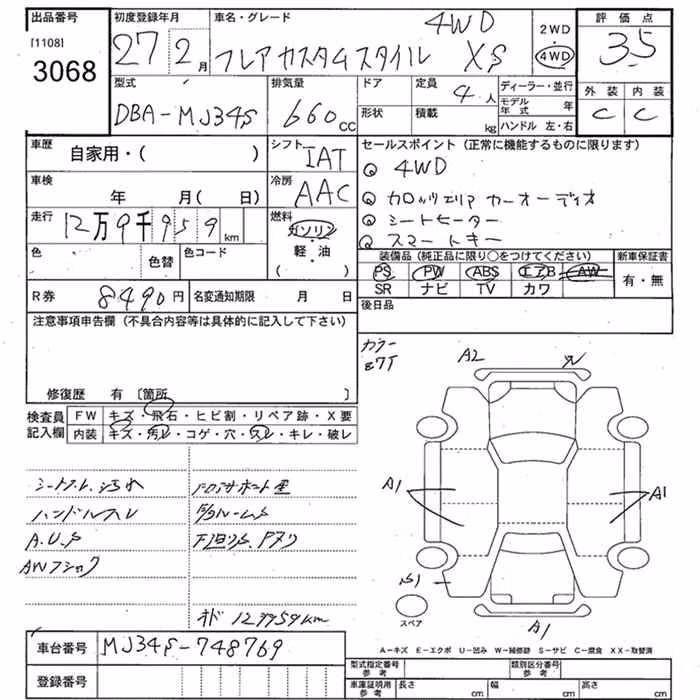 出品番号 初度登録年月 車名・グレード 4WD 2WD 評価点
[1108] 27 2月 フレアカスタムスタイル XS 4WD 3.5
3068
型式 排気量 ドア 定員 4人 ディーラー・並行 外装 内装
DBA-MJ34S 660cc 形状 積載 kg モデル年式 年 C C
ハンドル 左・右
車歴 自家用・( ) シフト IAT セールスポイント (正常に機能するものに限ります)
車検 年 月( 日) 冷房 AAC 4WD
カロッツェリア カーオーディオ
走行 12万9千959km 燃料 ガソリン・軽油 シートヒーター
( ) スマートキー
色 色替 色コード 装備品(純正品に限り○をつけてください) 新車保証書
PS PW ABS エアB AW 有・無
R券 8490円 名変通知期限 月 日 SR ナビ TV カワ
後日品
注意事項申告欄(不具合内容等は具体的に記入して下さい)
カラー
Z7T
A2 W
修復歴 有 〔箇所 〕
検査員 FW キズ・飛石・ヒビ割・リペア跡・X要
記入欄 内装 キズ・汚レ・コゲ・穴・スレ・キレ・破レ
シートスレ、汚れ
ハンドルスレ
A.U.S
AWフショク
A1 A1
S1
スペア
オド 129959km
A1
車台番号 MJ34S-748769
A-キズ E-エクボ U-凹み W-補修跡 S-サビ C-腐食 XX-取替済
登録番号 型式指定番号 参考 類別区分番号 参考
車庫証明用 参考 長さ cm 幅 cm 高さ cm